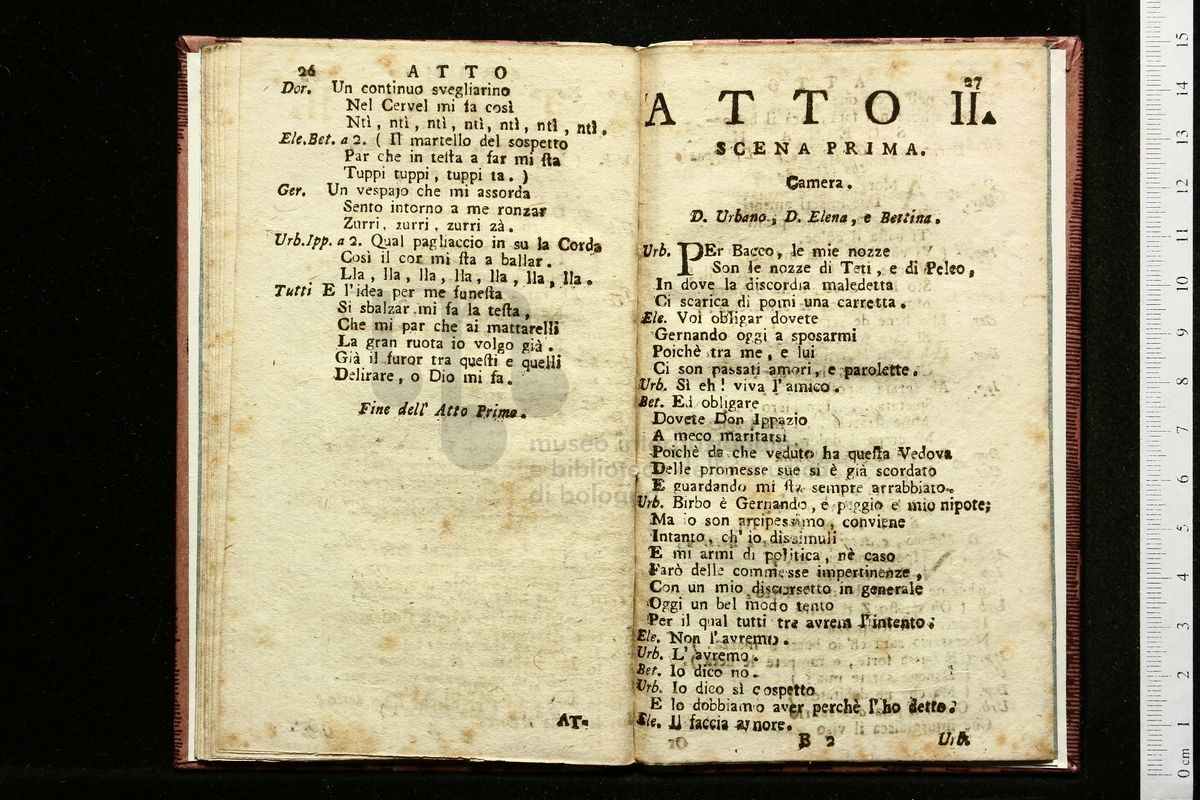 26 ATTO
Dor. Un continuo svegliarino
Nel Cervel mi fa così
Ntì, ntì, ntì, ntì, ntì, ntì, ntì.
Ele.Bet. a 2. ( Il martello del sospetto
Par che in teſta a far mi ſta
Tuppi tuppi, tuppi ta. )
Ger. Un vespajo che mi assorda
Sento intorno a me ronzar
Zurri, zurri, zurri zà.
Urb.Ipp. a 2. Qual pagliaccio in su la Corda
Così il cor mi ſta a ballar.
Lla, lla, lla, lla, lla, lla, lla.
Tutti E l'idea per me funeſta
Si sbalzar mi fa la teſta,
Che mi par che ai mattarelli
La gran ruota io volgo già.
Già il furor tra queſti e quelli
Delirare, o Dio mi fa.
Fine dell' Atto Primo.
AT-
27
ATTO II.
SCENA PRIMA.
Camera.
D. Urbano, D. Elena, e Bettina.
Urb. PEr Bacco, le mie nozze
Son le nozze di Teti, e di Peleo,
In dove la discordia maledetta
Ci scarica di pomi una carretta.
Ele. Voi obligar dovete
Gernando oggi a sposarmi
Poichè tra me, e lui
Ci son passati amori, e parolette.
Urb. Sì eh! viva l'amico.
Bet. Ed obligare
Dovete Don Ippazio
A meco maritarsi
Poichè da che veduto ha queſta Vedova
Delle promesse sue si è già scordato
E guardando mi ſta sempre arrabbiato.
Urb. Birbo è Gernando, e peggio e' mio nipote;
Ma io son arcipessimo, conviene
Intanto, ch' io dissimuli
E mi armi di politica, nè caso
Farò delle commesse impertinenze,
Con un mio discorsetto in generale
Oggi un bel modo tento
Per il qual tutti tre avrem l'intento.
Ele. Non l'avremo.
Urb. L'avremo.
Bet. Io dico no.
Urb. Io dico sì cospetto
E lo dobbiamo aver perchè l'ho detto.
Ele. Il faccia amore.
B 2 Urb.
museo
e bibliote
di bologn
0 cm 1 2 3 4 5 6 7 8 9 10 11 12 13 14 15